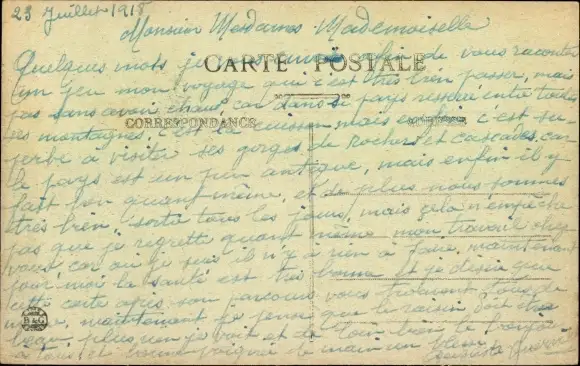 23 Juillet 1918
Monsieur Mesdames Mademoiselle
CARTE POSTALE
Quelques mots de vous raconter
un peu mon voyage qui c'est très bien passer, mais
pas sans avoir chaud, car dans si pays resseré entre toutes
ses montagnes, c'est la cuisson mais enfin c'est su-
CORRESPONDANCE
perbe a visiter ses gorges de Rochers et cascades, car
le pays est un peu antique, mais enfin il y
fait bon quant même, et de plus nous sommes
très bien sortie tous les jours, mais cela n'empêche
pas que je regrette quant même mon travail chez
vous car où je suis il n'y a rien a faire, maintenant
pour moi la santé est très bonne et je désire que
cette carte après son parcours vous trouvent tous de
même, maintenant je pense que le raisin doit être
beau plus, on je voit et de bien le bonjour
a tous et bonne poignée de main
B&G